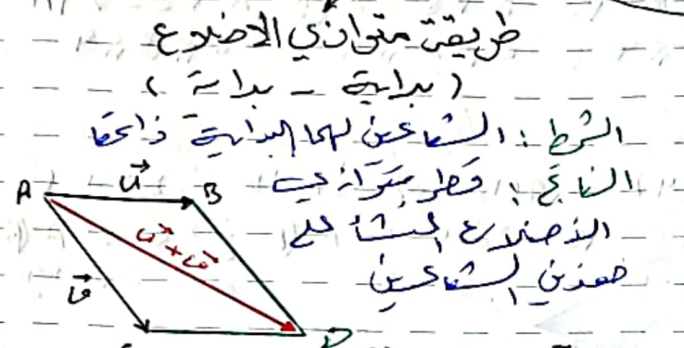 طريقة متوازي الاضلاع
(بداية - بداية)
الشرط : الشعاعين لهما البداية ذاتها
الناتج : قطر متوازي
الأضلاع المنشأ على
هذين الشعاعين
A u B
u + v
v
D